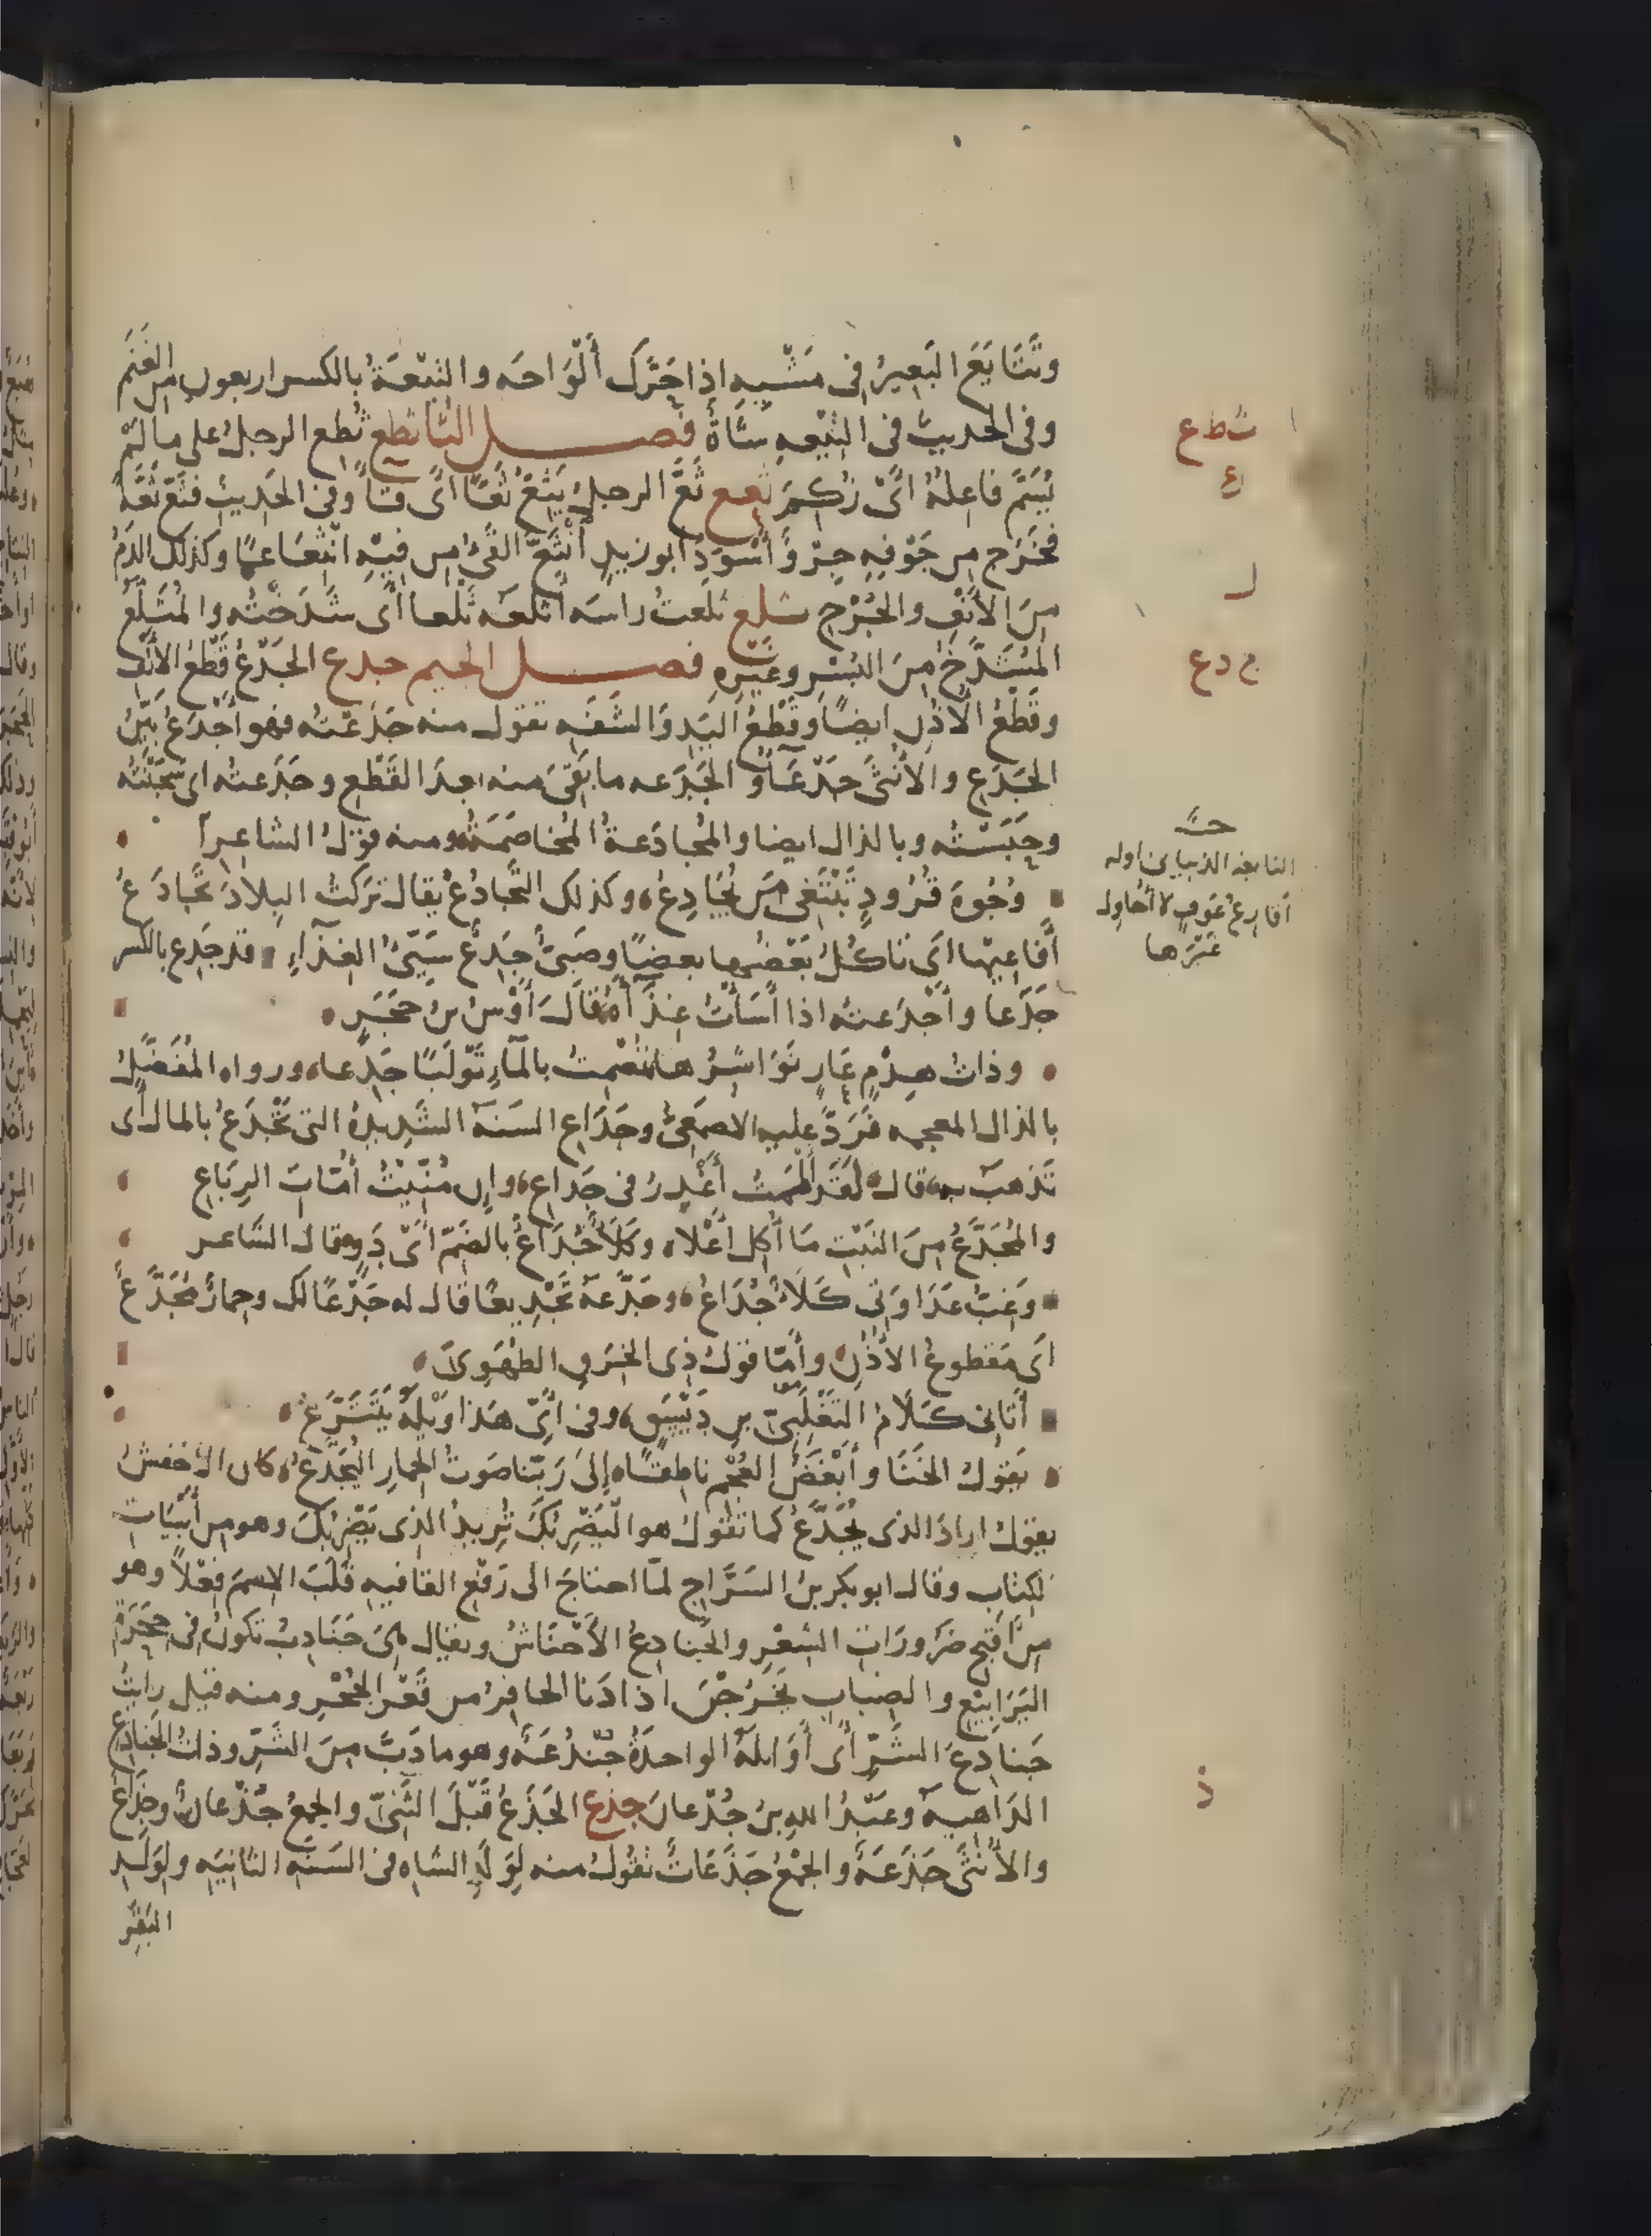 وتَتَايَعَ البَعِيرُ فى مَشْيِهِ اِذا حَرَّكَ أَلْوَاحَه والتِيعَةُ بالكسر اربعون من الغَنَم
وفى الحديث فى التِيْعه شَاةٌ فصـل الثا ثطع ثُطِع الرجلُ على ما لَمْ
يُسَمَّ فاعِلُهُ اىْ زُكِمَ ثعع ثَعَّ الرجلُ يَثِعُّ ثَعًّا اى قاَ وفى الحَدِيث فثَعَّ ثَعَّةً
فخَرَج من جَوْفِهِ جِرْوٌ أَسْوَدُ ابو زيدٍ اُنْثَعَّ القَىْءُ مِن فِيْهِ انْثِعَاعًا وكذلك الدَمُ
مِنَ الأنْفِ والجُرْحِ ثلع ثلعتُ راسَه أثلعُه ثَلْعا اى شَدَخْتُه والمُثَلَّعُ
المُشَدَّخُ مِنَ البُسْرِ وغَيْرِهِ فصـل الجيم جدع الجَدْعُ قَطْعُ الأَنْفِ
وقَطْعُ الأذُنِ ايضًا وقَطْعُ اليَدِ وَالشَفَهِ تقول منه جَدَعْتُه فهو أَجْدَعُ بَيِّنُ
الجَدَعِ والأُنْثَى جَدْعَآءُ والجَدَعه ما بَقِىَ منه بعدَ القَطْعِ وجَدَعتُه اى سَجَنْتُه
وحَبَسْتُه وبالذال ايضا والمُجادَعةُ المُخاصَمَةُ ومنه قوْلُ الشاعِر
وُجُوهَ قُرُودٍ تَبْتَغى مَن تُجَادِعُ وكذلك التَّجَادُعُ يقال تَركتُ البِلادَ تَجَادَعُ
أَفَاعِيْها اى تَاكُلُ بَعْضُها بعضًا وصَبِىٌّ جَدِعٌ سَيِّىُ الغِذَآءِ قد جَدِع بالكسر
جَدَعا وأَجْدَعتُه اذا أَسَأْتَ غِذَآءَهُ قَالَ أَوْسُ بنُ حَجَرٍ
وذاتُ هِدْمٍ عَارٍ نَوَاشِرُها تُصْمِتُ بالمَآءِ تَوْلَبًا جَدِعا ورواه المُفَضَّلُ
بالذال المعجمه فَرَدَّ عليه الاصمَعِىُّ وجَدَاعِ السَنَة الشَدِيدِةُ التى تَجْدَعُ بالمال اى
تَذهَبُ به قال لَقَد آلَيْتُ أَغْدِرُ فى جَدَاعِ وان مُنِّيْتُ أُمّاتَ الرِبَاعِ
والمُجَدَّعُ مِنَ النَبْتِ مَا أُكِل أَعْلاه وكَلَأٌ جُدَاعٌ بالضَمّ اىْ دَوٍ قال الشَاعر
وغِبُّ عَدَاوَتِى كَلَأٌ جُدَاعُ وجَدَّعَهُ تَجْدِيعًا قال له جَدْعًا لك وحِمارٌ مُجَدَّعٌ
اى مَقطوعُ الاذُنِ وأَمّا قولُ ذِى الخِرَقِ الطُهَوِىّ
أَتَانِى كَلَامُ التَغْلَبِىِّ بنِ دَيْسَقٍ وفى أَىِّ هَذا وَيْلَهُ يَتَتَرَّعُ
يَقُولُ الخَنَا وأَبْغَضُ العُجْمِ ناطِقًا إلى رَبِّنا صَوتُ الحِمارِ اليُجَدَّعُ كان الأخفشُ
يقول ارادَ الذى يُجَدَّعُ كما تقُولُ هو اليَضْرِبُكَ تُرِيدُ الذى يَضْرِبُكَ وهو من أَبْيَاتِ
الكِتابِ وقال ابو بكر بنُ السَرَّاجِ لمَّا احتاجَ الى رَفْعِ القافيهِ قَلَبَ الاسمَ فِعْلًا وهو
من أَقبَح ضَرُورَاتِ الشِعْرِ والجَنادِعُ الأَحْنَاشُ ويقال هىَ جَنَادِبُ تكونُ فى جِحَرَةِ
اليَرَابِيْع والضِبابِ يَخْرُجْنَ اذا دَنا الحافِرُ من قَعْرِ الجُحْرِ ومنه قيل رايتُ
جَنادِعَ الشَرِّ أى أَوَايلَهُ الواحدَةُ جُنْدُعَةٌ وهو ما دَبَّ مِنَ الشَرِّ وذاتُ الجَنادِعِ
الدَاهيه وعَبْدُ اللهِ بنُ جُدْعانَ جذع الجَذَعُ قَبْلَ الثَنِىِّ والجمعُ جُذْعانٌ وجِذَاعٌ
والأُنْثَى جَذَعَةٌ والجَمْعُ جَذَعَاتٌ تقُولُ منه لِوَلَدِ الشاه فى السَنَهِ الثانِيَهِ ولِوَلَدِ
البَقَرِ
ث ط ع
ع
ل
ج د ع
النابغه الذبيانى اوله
أقارِعُ عَوفٍ لا أُحاوِل
غَيْرَها
ذ